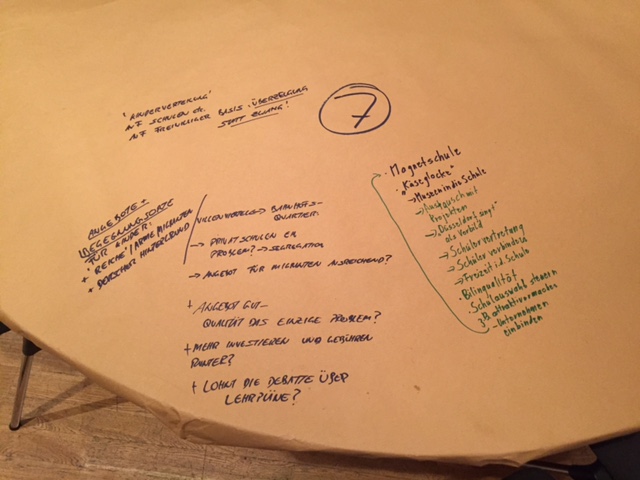 'KINDERVERTEILUNG'
AUF SCHULEN ETC.
AUF FREIWILLIGER BASIS. ÜBERZEUGUNG
STATT ZWANG!
7
ANGEBOTE +
BEGEGNUNGSORTE
FÜR KINDER!
+ 'REICHE'/ARME MIGRANTEN
+ DEUTSCHER HINTERGRUND
→ BAHNHOFS-
QUARTIER.
→ PRIVATSCHULEN EIN
PROBLEM? → SEGREGATION
→ ANGEBOT FÜR MIGRANTEN AUSREICHEND?
+ ANGEBOT GUT -
QUALITÄT DAS EINZIGE PROBLEM?
+ MEHR INVESTIEREN UND GEBÜHREN
RUNTER?
+ LOHNT DIE DEBATTE ÜBER
LEHRPLÄNE?
· Magnetschule
· „Käseglocke"
→ Museen in die Schule
→ Austausch mit
Projekten
→ „Düsseldorf singt"
als Vorbild
→ Schülervertretung
→ Schüler verbinden
→ Freizeit i.d. Schule
· Bilingualität
· Schulauswahl steuern
attraktiver machen
- Unternehmen
einbinden